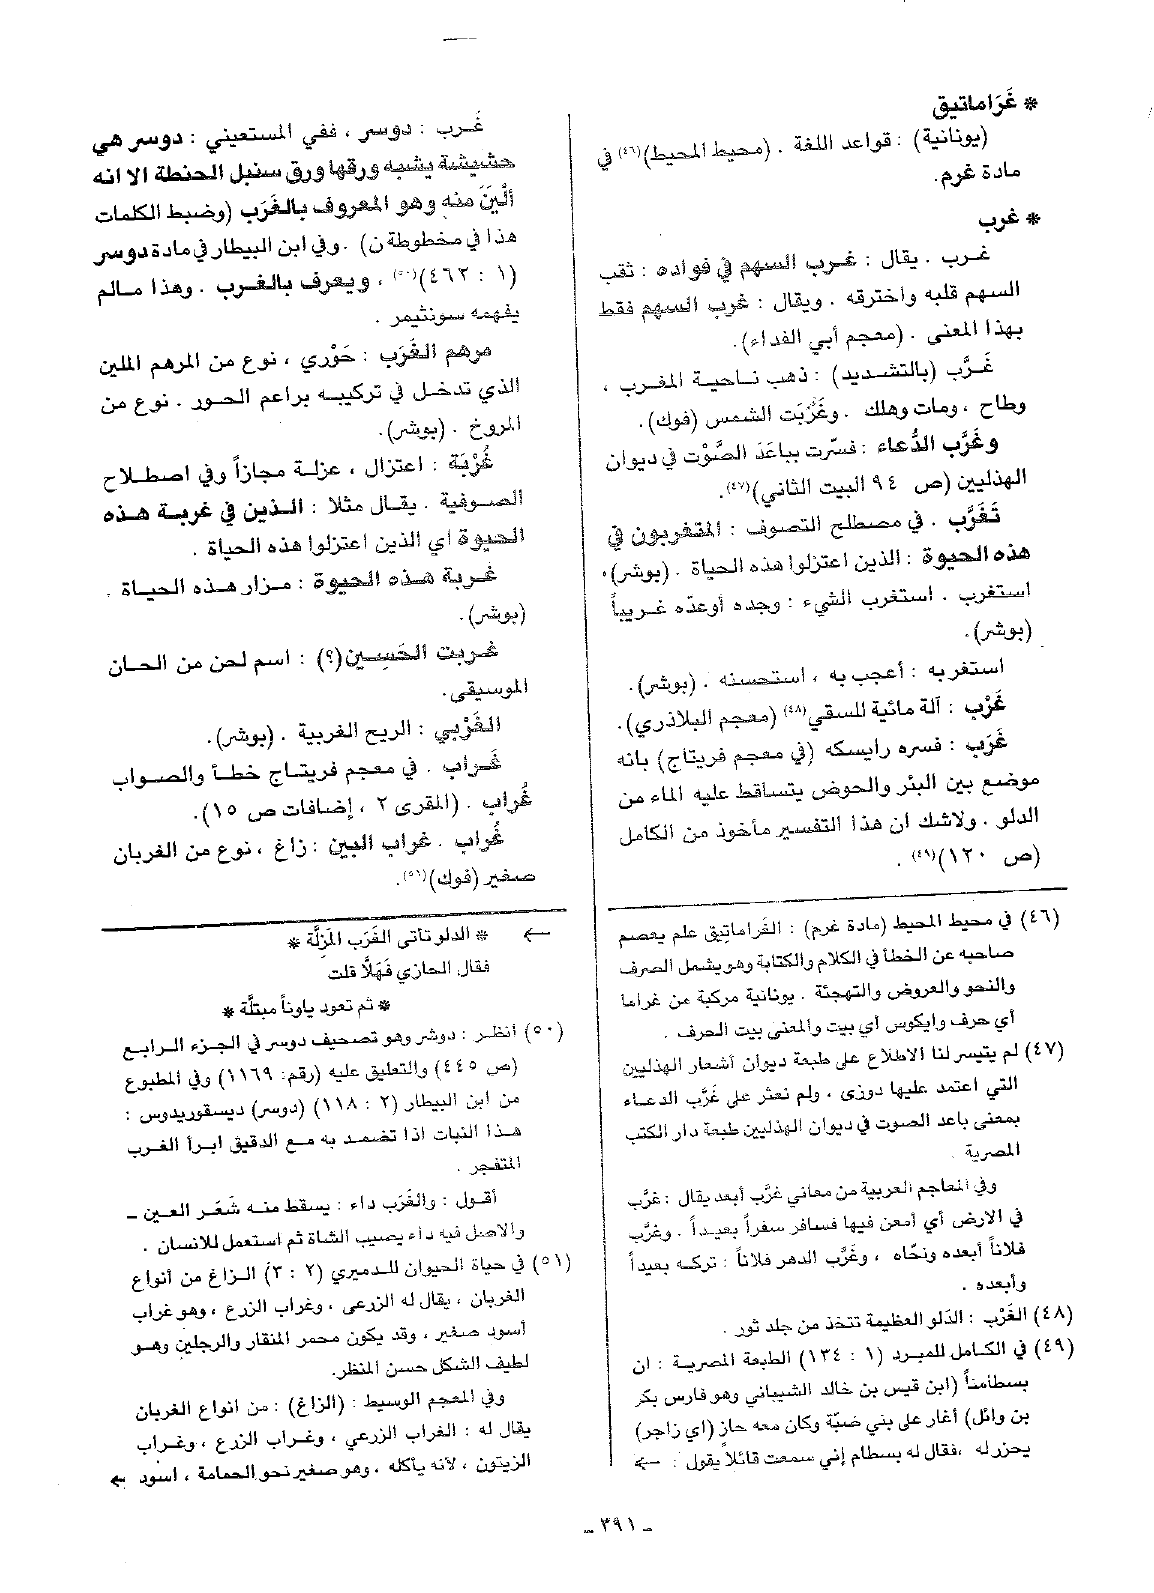 * غَرَاماتيق
(يونانية) : قواعد اللغة . (محيط المحيط)(٤٦) في
مادة غرم.
* غرب
غرب . يقال : غرب السهم في فواده : ثقب
السهم قلبه واخترقه . ويقال : غرب السهم فقط
بهذا المعنى . (معجم أبي الفداء).
غَرَّب (بالتشديد) : ذهب ناحية المغرب ،
وطاح ، ومات وهلك . وغَرَّبَت الشمس (فوك).
وغَرَّب الدُّعاء : فسّرت بباعَدَ الصَّوْت في ديوان
الهذليين (ص ٩٤ البيت الثاني)(٤٧).
تَغَرَّب . في مصطلح التصوف : المتغربون في
هذه الحيوة : الذين اعتزلوا هذه الحياة . (بوشر)٠
استغرب . استغرب الشيء : وجده أوعدّه غريباً
(بوشر).
استغربه : أعجب به ، استحسنه . (بوشر).
غَرْب : آلة مائية للسقي(٤٨) (معجم البلاذري).
غَرَب : فسره رايسكه (في معجم فريتاج) بانه
موضع بين البئر والحوض يتساقط عليه الماء من
الدلو . ولاشك ان هذا التفسير مأخوذ من الكامل
(ص ١٢٠)(٤٩) .
(٤٦) في محيط المحيط (مادة غرم) : الغَراماتِيق علم يعصم
صاحبه عن الخطأ في الكلام والكتابة وهو يشمل الصرف
والنحو والعروض والتهجئة . يونانية مركبة من غراما
أي حرف وايكوس أي بيت والمعنى بيت الحرف .
(٤٧) لم يتيسر لنا الاطلاع على طبعة ديوان أشعار الهذليين
التي اعتمد عليها دوزى ، ولم نعثر على غَرَّب الدعاء
بمعنى باعد الصوت في ديوان الهذليين طبعة دار الكتب
المصرية .
وفي المعاجم العربية من معاني غرَّب أبعد يقال : غرَّب
في الارض أي أمعن فيها فسافر سفراً بعيداً . وغرَّب
فلاناً أبعده ونحّاه ، وغرَّب الدهر فلاناً : تركه بعيداً
وأبعده .
(٤٨) الغَرْب : الدَلو العظيمة تتخذ من جلد ثور .
(٤٩) في الكامل للمبرد (١ : ١٣٤) الطبعة المصرية : ان
بسطاماً (ابن قيس بن خالد الشيباني وهو فارس بكر
بن وائل) أغار على بني ضبّة وكان معه حازٍ (اي زاجر)
يحزر له ،فقال له بسطام إني سمعت قائلاً يقول : ←
غَرب : دوسر ، ففي المستعيني : دوسر هي
حشيشة يشبه ورقها ورق سنبل الحنطة الا انه
ألْيَنَ منه وهو المعروف بالغَرَب (وضبط الكلمات
هذا في مخطوطة ن) . وفي ابن البيطار في مادة دوسر
(١ : ٤٦٢)(٥٠) ، ويعرف بالغرب . وهذا مالم
يفهمه سونثيمر .
مرهم الغَرَب : حَوْري ، نوع من المرهم الملين
الذي تدخل في تركيبه براعم الحور . نوع من
المروخ . (بوشر).
غُرْبَة : اعتزال ، عزلة مجازاً وفي اصطلاح
الصوفية . يقال مثلا : الذين في غربة هذه
الحيوة أي الذين اعتزلوا هذه الحياة .
غربة هذه الحيوة : مزار هذه الحياة .
(بوشر).
غربت الحَسِين(؟) : اسم لحن من الحان
الموسيقى.
الغَرْبي : الريح الغربية . (بوشر).
غَراب . في معجم فريتاج خطأ والصواب
غُراب . (المقرى ٢ ، إضافات ص ١٥).
غُراب . غراب البين : زاغ ، نوع من الغربان
صغير (فوك)(٥١).
← * الدلو تأتى الغَرَب المَزِلَّة *
فقال الحازي فَهَلَّا قلت
* ثم تعود باوناً مبتلَّة *
(٥٠) أنظر : دوشر وهو تصحيف دوسر في الجزء الرابع
(ص ٤٤٥) والتعليق عليه (رقم: ١١٦٩) وفي المطبوع
من ابن البيطار (٢ : ١١٨) (دوسر) ديسقوريدوس :
هذا النبات اذا تضمد به مع الدقيق ابرأ الغرب
المتفجر .
أقول : والغَرَب داء : يسقط منه شَعَر العين ـ
والاصل فيه داء يصيب الشاة ثم استعمل للانسان .
(٥١) في حياة الحيوان للدميري (٢ : ٣) الزاغ من أنواع
الغربان ، يقال له الزرعى ، وغراب الزرع ، وهو غراب
أسود صغير ، وقد يكون محمر المنقار والرجلين وهو
لطيف الشكل حسن المنظر.
وفي المعجم الوسيط : (الزاغ) : من انواع الغربان
يقال له : الغراب الزرعي ، وغراب الزرع ، وغراب
الزيتون ، لانه يأكله . وهو صغير نحو الحمامة ، اسود ←
ـ ٣٩١ ـ